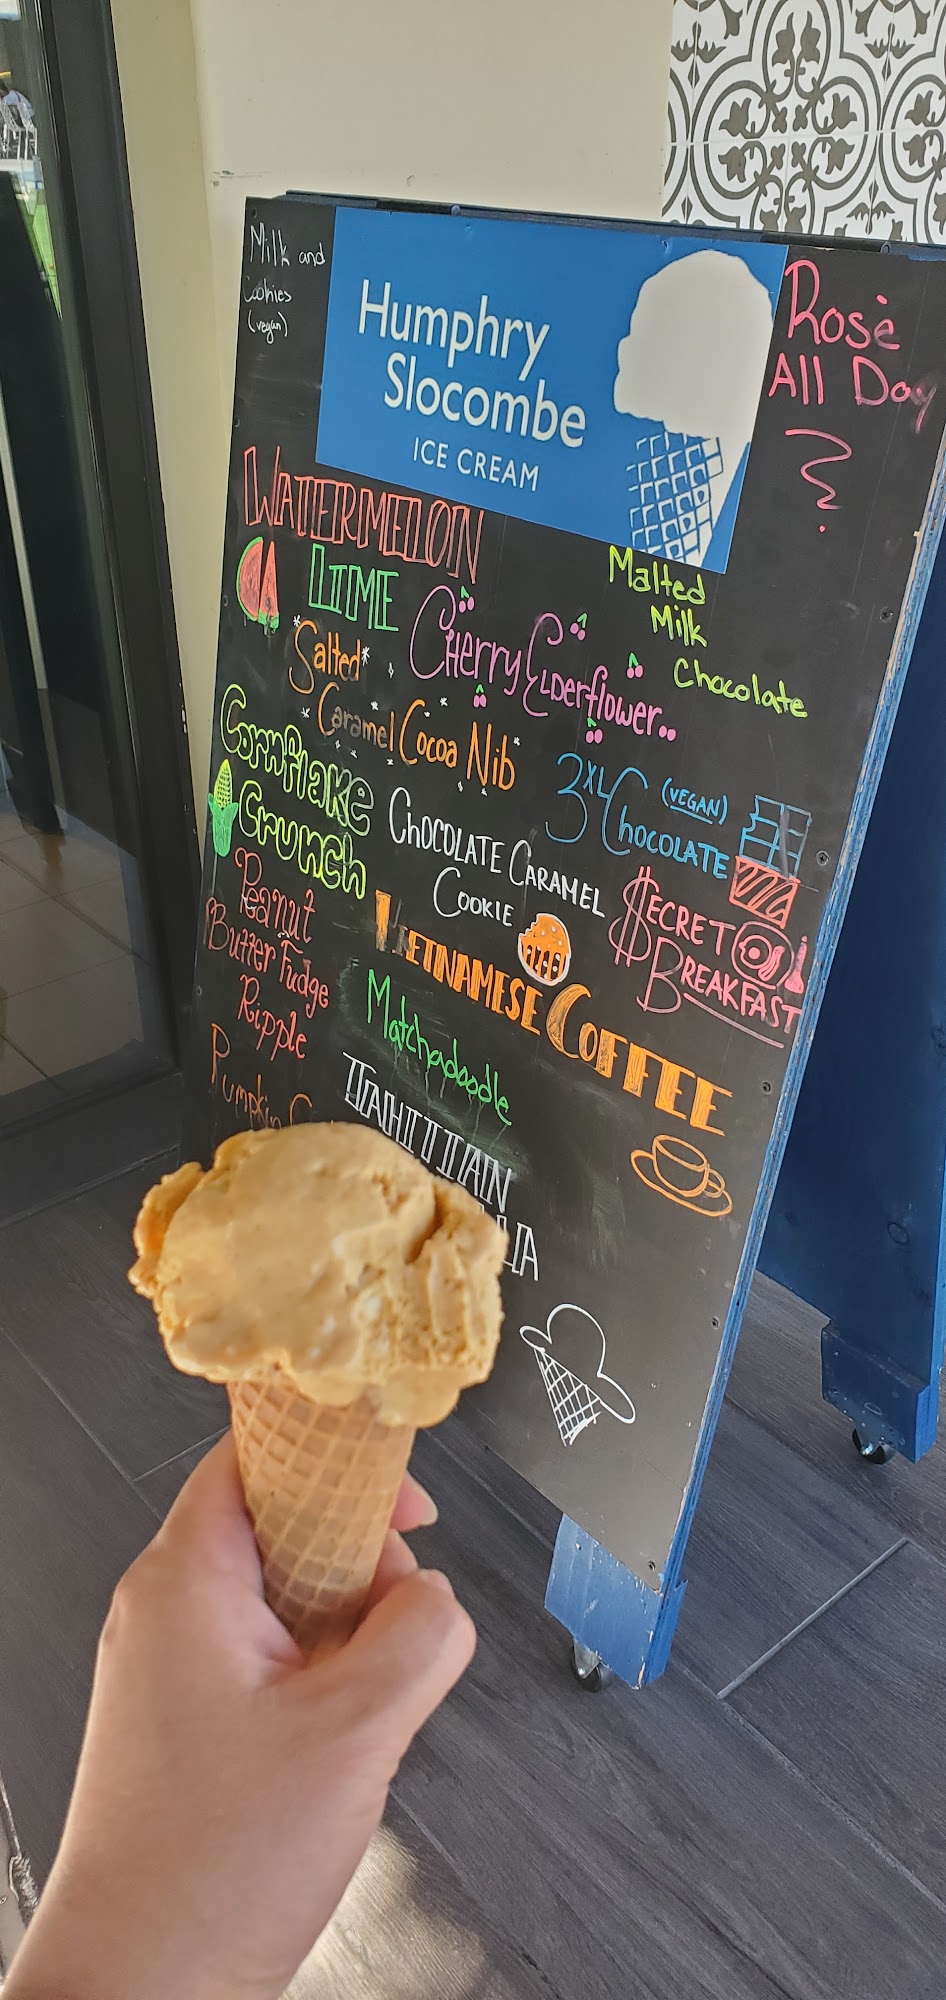 Milk and
Cookies
(vegan)
Humphry
Slocombe
ICE CREAM
Rosè
All Day
WATERMELON
LIME
Malted
Milk
Chocolate
Cherry Elderflower
*Salted*
Caramel Cocoa Nib
Cornflake
Crunch
3XL (VEGAN)
CHOCOLATE
CHOCOLATE CARAMEL
COOKIE
$ECRET
BREAKFAST
Peanut
Butter Fudge
Ripple
VIETNAMESE COFFEE
Matchadoodle
Pumpkin
TAHITIAN